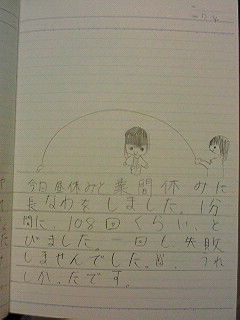 今日昼休みと業間休みに
長なわをしました。1分
間に、108回くらい、と
びました。一回も、失敗
しませんでした。 うれ
しかったです。